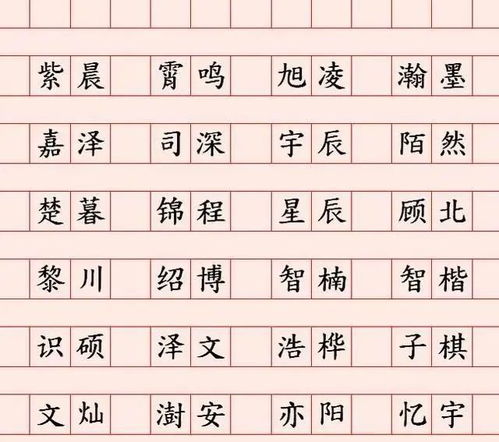 紫晨 霄鸣 旭凌 瀚墨
嘉泽 司深 宇辰 陌然
楚暮 锦程 星辰 顾北
黎川 绍博 智楠 智楷
识硕 泽文 浩桦 子棋
文灿 澍安 亦阳 忆宇